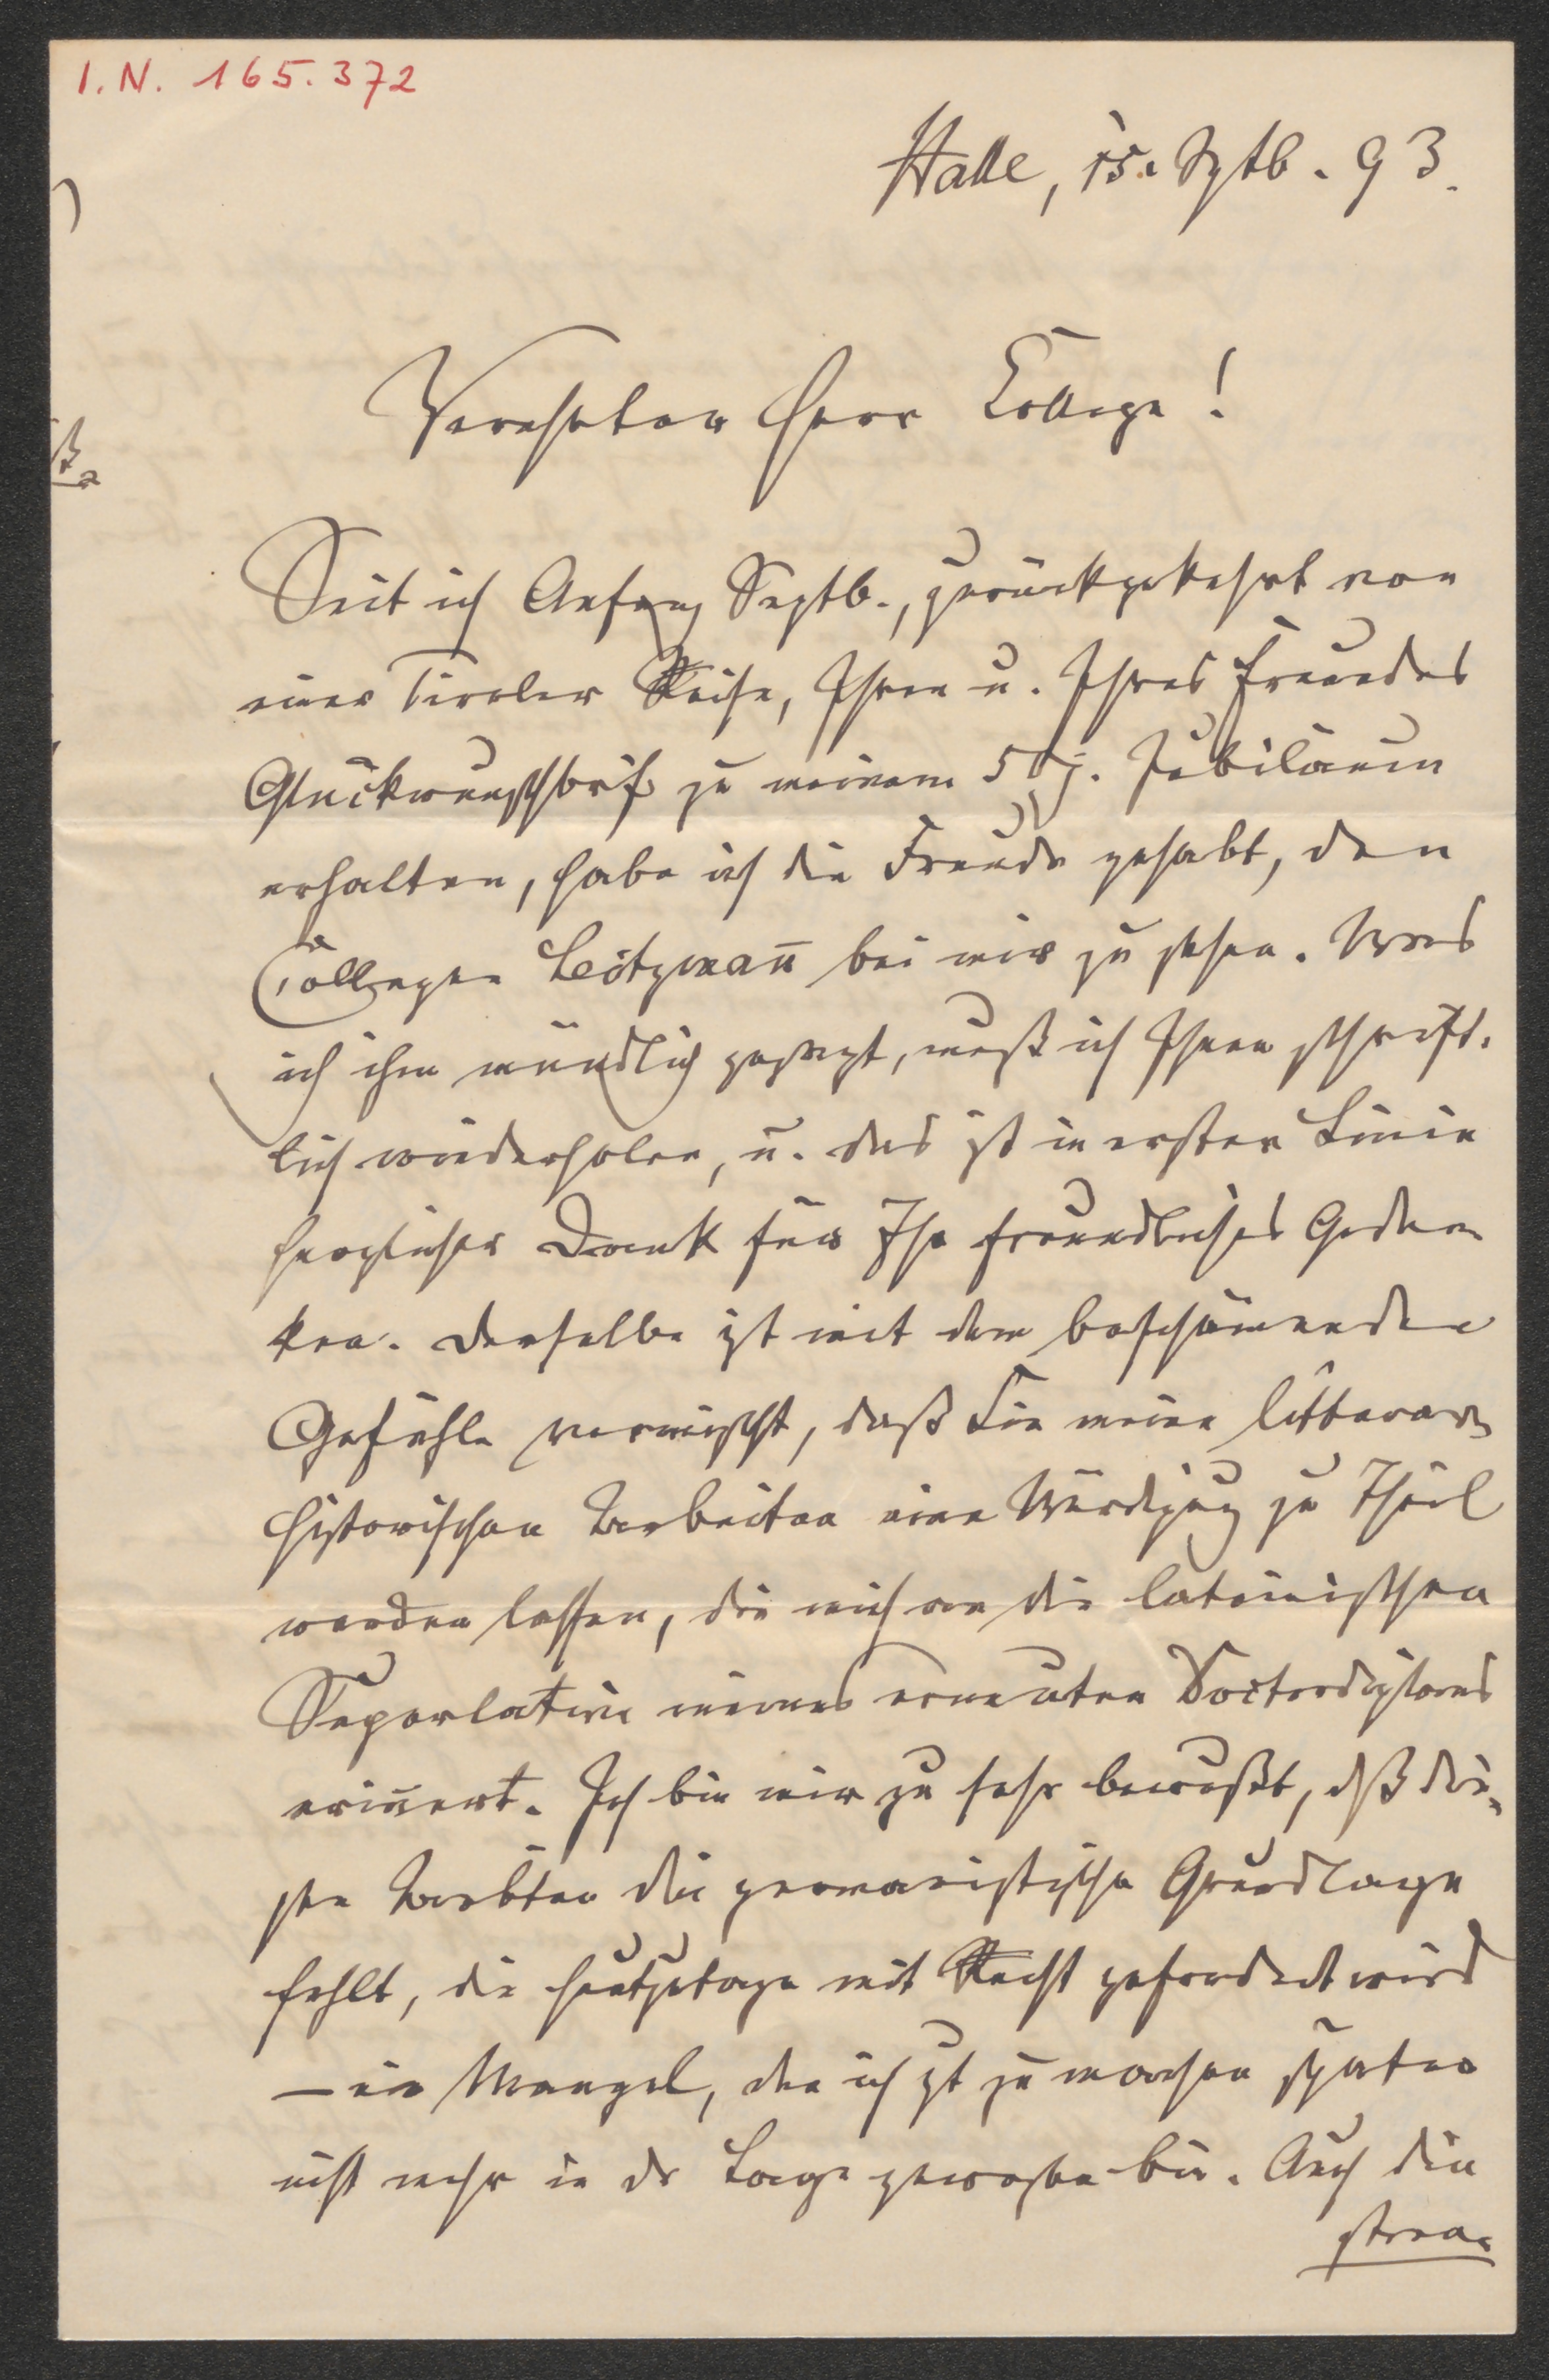 I.N. 165.372
Halle, 15. Sptb. 93.
Verehrter Herr College!
Seit ich Anfang Septb., zurückgekehrt von
einer Tiroler Reise, Ihren u. Ihres Freundes
Glückwunschbrief zu meinem 50j. Jubiläum
erhalten, habe ich die Freude gehabt, den
Collegen Leitzmann bei mir zu sehen. Was
ich ihm mündlich gesagt, muß ich Ihnen schrift-
lich wiederholen, u. das ist in erster Linie
herzlicher Dank für Ihr freundliches Geden-
ken. Derselbe ist mit dem beschämenden
Gefühle vermischt, daß Sie meinen litterar-
historischen Arbeiten eine Würdigung zu Theil
werden lassen, die mich an die lateinischen
Superlative meines erneuten Doctordiploms
erinnert. Ich bin mir zu sehr bewußt, dß die-
sen Arbten die germanistische Grundlage
fehlt, die heutzutage mit Recht gefordert wird
– ein Mangel, den ich gt zu machen später
nicht mehr in dr Lage gewesen bin. Auch die